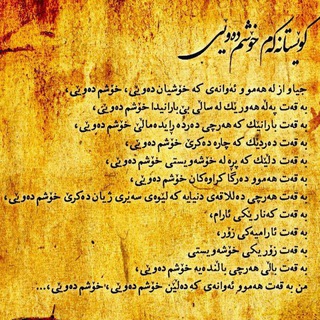 کوێستانەکەم خۆشم دەوێی
جیاواز لە هەموو ئەوانەی کە خۆشیان دەوێی، خۆشم دەوێی،
بە قەت پەلە هەورێك لە ساڵی بێ بارانیدا خۆشم دەوێی،
بە قەت بارانێك کە هەرچی دەردە رایدەماڵێ خۆشم دەوێی،
بە قەت دەردێك کە چارە دەکرێ خۆشم دەوێی،
بە قەت دڵێك کە پڕە لە خۆشەویستی خۆشم دەوێی،
بە قەت هەموو دەرگا کراوەکان خۆشم دەوێی،
بە قەت هەرچی دەلاقەی دنیایە کە لێوەی سەیری ژیان دەکرێ خۆشم دەوێی،
بە قەت کەنارێکی ئارام،
بە قەت ئارامیەکی زۆر،
بە قەت زۆرێکی خۆشەویستی
بە قەت باڵی هەرچی باڵندەیە خۆشم دەوێی،
من بە قەت هەموو ئەوانەی کە دەڵێن خۆشم دەوێی، خۆشم دەوێی،...